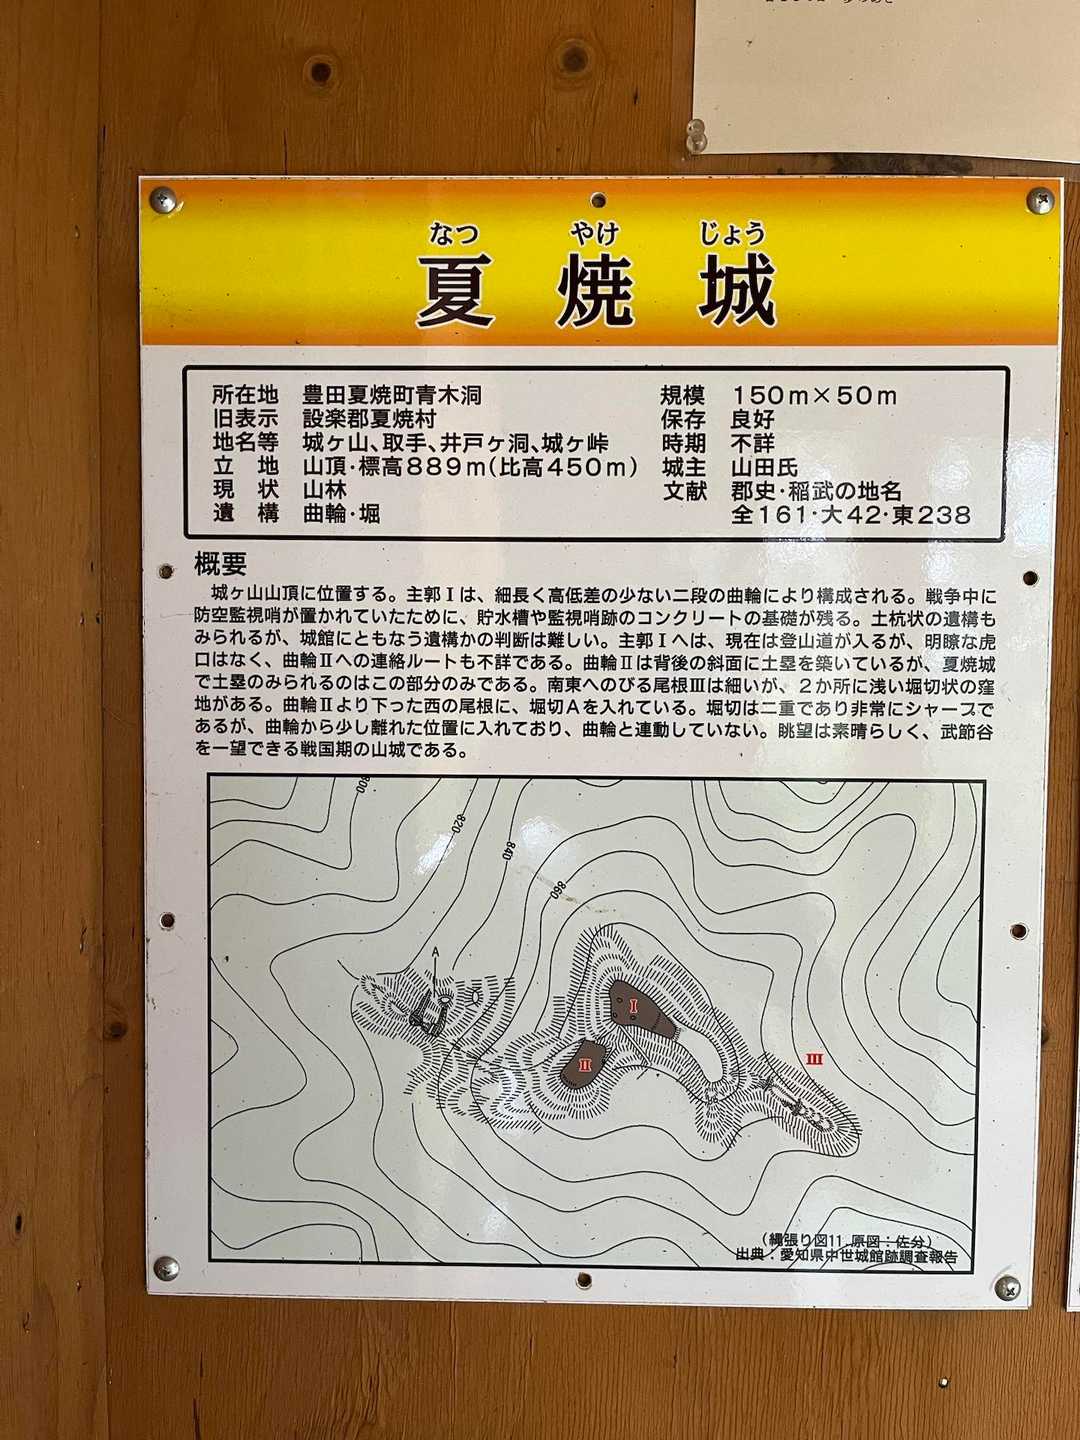 なつ やけ じょう
夏焼城
所在地 豊田夏焼町青木洞
旧表示 設楽郡夏焼村
地名等 城ヶ山、取手、井戸ヶ洞、城ヶ峠
立地 山頂・標高889m(比高450m)
現状 山林
遺構 曲輪・堀
規模 150m×50m
保存 良好
時期 不詳
城主 山田氏
文献 郡史・稲武の地名
全161・大42・東238
概要
城ヶ山山頂に位置する。主郭Ⅰは、細長く高低差の少ない二段の曲輪により構成される。戦争中に
防空監視哨が置かれていたために、貯水槽や監視哨跡のコンクリートの基礎が残る。土杭状の遺構も
みられるが、城館にともなう遺構かの判断は難しい。主郭Ⅰへは、現在は登山道が入るが、明瞭な虎
口はなく、曲輪Ⅱへの連絡ルートも不詳である。曲輪Ⅱは背後の斜面に土塁を築いているが、夏焼城
で土塁のみられるのはこの部分のみである。南東へのびる尾根Ⅲは細いが、2か所に浅い堀切状の窪
地がある。曲輪Ⅱより下った西の尾根に、堀切Aを入れている。堀切は二重であり非常にシャープで
あるが、曲輪から少し離れた位置に入れており、曲輪と連動していない。眺望は素晴らしく、武節谷
を一望できる戦国期の山城である。
800
820
840
860
A
Ⅰ
Ⅱ
Ⅲ
(縄張り図11 原図:佐分)
出典:愛知県中世城館跡調査報告